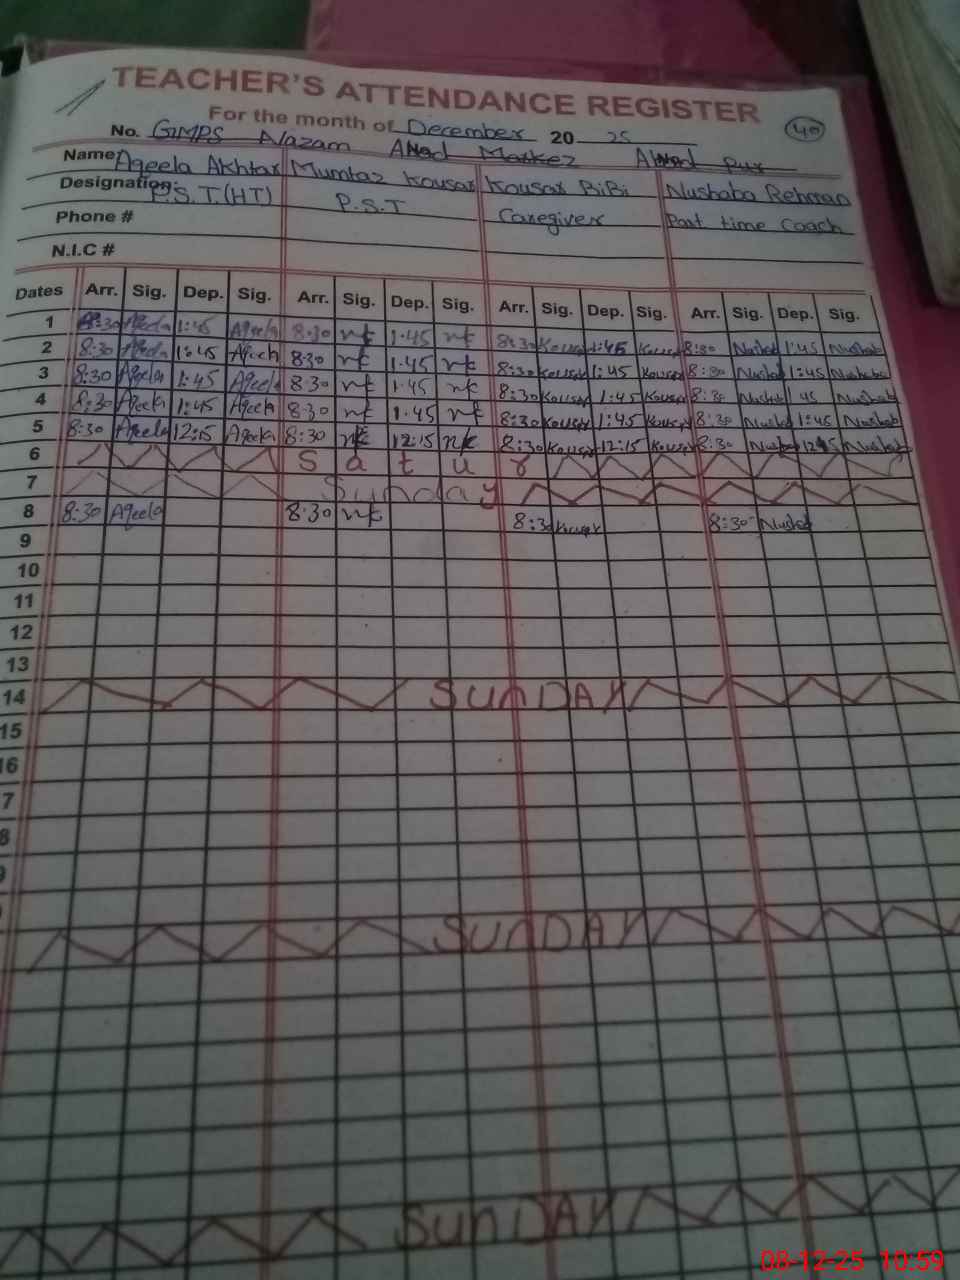 TEACHER'S ATTENDANCE REGISTER
For the month of December 20 25
40
No. GMPS Alazam Markez Pur
Name: Aqeela Akhtar Mumtaz Kousar Kousar BiBi Nushaba Rehman
Designation: P.S.T.(HT) P.S.T Caregiver Part time coach
Phone #
N.I.C #
Dates Arr. Sig. Dep. Sig. Arr. Sig. Dep. Sig. Arr. Sig. Dep. Sig. Arr. Sig. Dep. Sig.
1 8:30 Aqeela 1:45 Aqeela 8:30 mk 1.45 mk 8:30 Kousar 1:45 Kousar 8:30 Nushab 1:45 Nushab
2 8:30 Aqeela 1:45 Aqeela 8:30 mk 1.45 mk 8:30 Kousar 1:45 Kousar 8:30 Nushab 1:45 Nushab
3 8:30 Aqeela 1:45 Aqeela 8:30 mk 1.45 mk 8:30 Kousar 1:45 Kousar 8:30 Nushab 1 45 Nushab
4 8:30 Aqeela 1:45 Aqeela 8.30 mk 1.45 mk 8:30 Kousar 1:45 Kousar 8:30 Nushab 1:45 Nushab
5 8:30 Aqeela 12:15 Aqeela 8:30 mk 12:15 mk 8:30 Kousar 12:15 Kousar 8:30 Nushab Nushab
6 S a t u r
7 Sunday
8 8:30 Aqeela 8:30 mk 8:30 Kousar 8:30 Nushab
9
10
11
12
13
14 SUNDAY
15
16
7
8
9
SUNDAY
SUNDAY
08-12-25 10:59